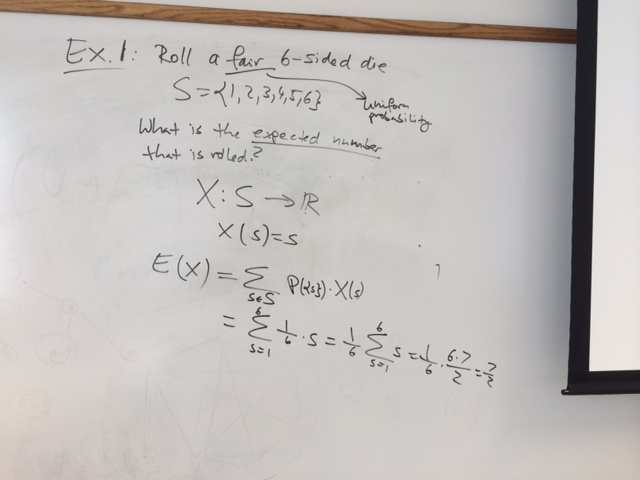 Ex. 1: Roll a fair 6-sided die
S = {1,2,3,4,5,6}
Uniform
probability
What is the expected number
that is rolled?
X: S → ℝ
X(s) = s
E(X) = ∑_{s∈S} P({s}) · X(s)
= ∑_{s=1}^{6} 1/6 · s = 1/6 ∑_{s=1}^{6} s = 1/6 · 6·7/2 = 7/2